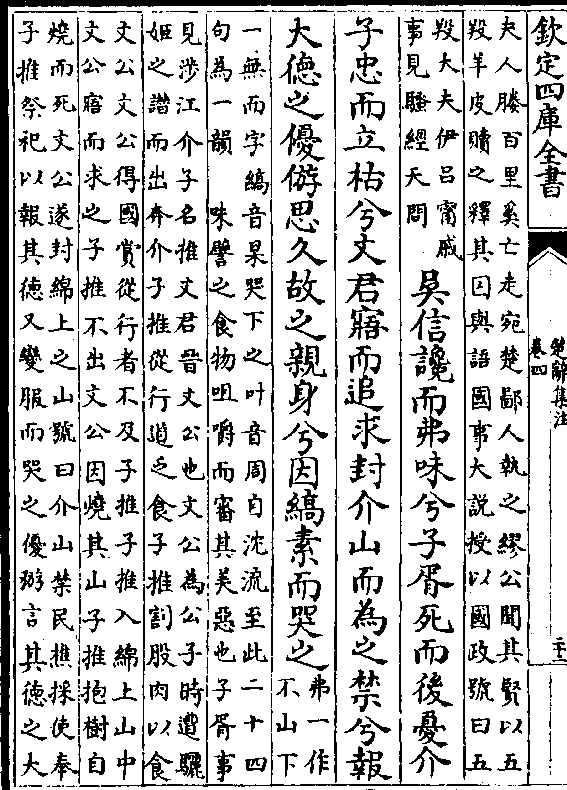 欽定四庫全書
楚辭集注
卷四
夫人媵百里奚亡走宛楚鄙人執之繆公聞其賢以五
羖羊皮贖之釋其囚與語國事大說授以國政號曰五
羖大夫伊呂甯戚
事見騷經天問
吳信讒而弗味兮子胥死而後憂介
子忠而立枯兮文君寤而追求封介山而為之禁兮報
大德之優游思久故之親身兮因縞素而哭之
弗一作
不山下
一無而字縞音杲哭下之叶音周自沈流至此二十四
句為一韻
味譬之食物咀嚼而審其美惡也子胥事
見涉江介子名推文君晉文公也文公為公子時遭驪
姬之譖而出奔介子推從行道乏食子推割股肉以食
文公文公得國賞從行者不及子推子推入綿上山中
文公寤而求之子推不出文公因燒其山子推抱樹自
燒而死文公遂封綿上之山號曰介山禁民樵採使奉
子推祭祀以報其德又變服而哭之優游言其德之大